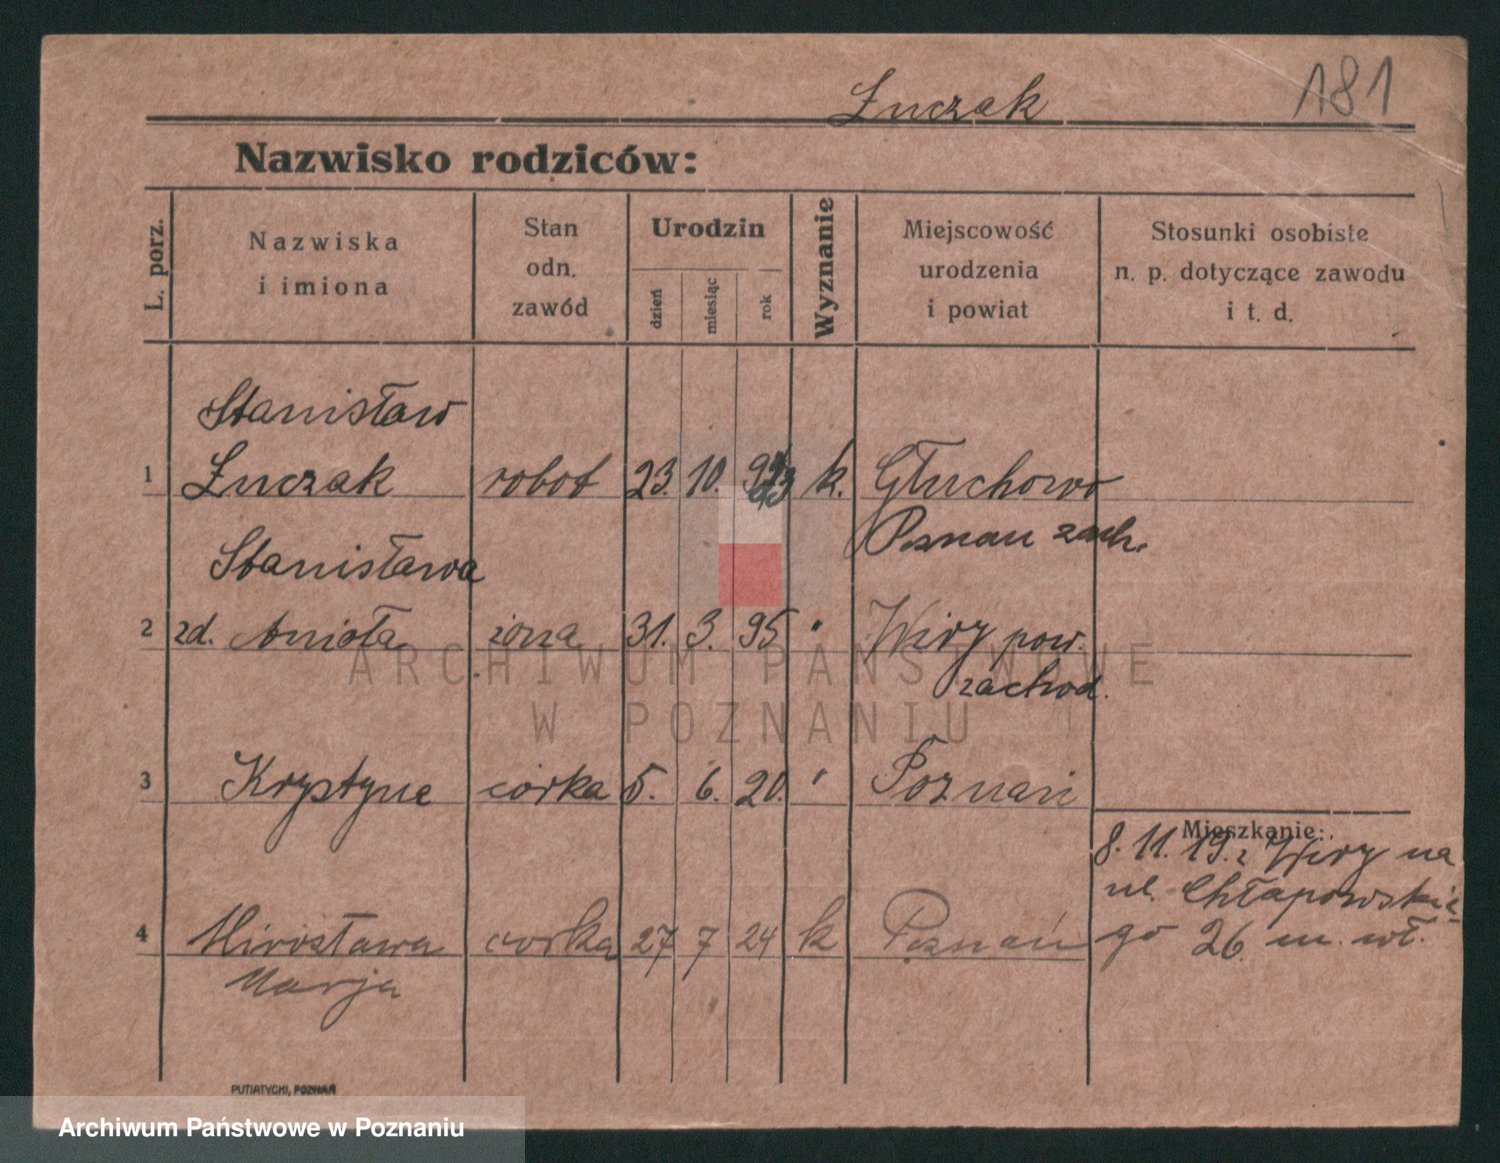 Łuczak 181
Nazwisko rodziców:
L. porz.
Nazwiska
i imiona
Stan
odn.
zawód
Urodzin
dzień
miesiąc
rok
Wyznanie
Miejscowość
urodzenia
i powiat
Stosunki osobiste
n. p. dotyczące zawodu
i t. d.
Stanisław
1 Łuczak robot 23. 10. k. Głuchowo
Poznau zach.
Stanisława
2 zd. Anioła żona 31. 3. 95 " Wiry pow.
zachod.
3 Krystyna córka 5. 6. 20. " Poznań
Mieszkanie:
8. 11. 19. z Wiry na
ul. Chłapowskie-
go 26 m. wł.
4 Mirosława córka 27 7 24 k Poznań
Marja
PUTIATYCKI, POZNAŃ
ARCHIWUM PAŃSTWOWE
W POZNANIU
Archiwum Państwowe w Poznaniu